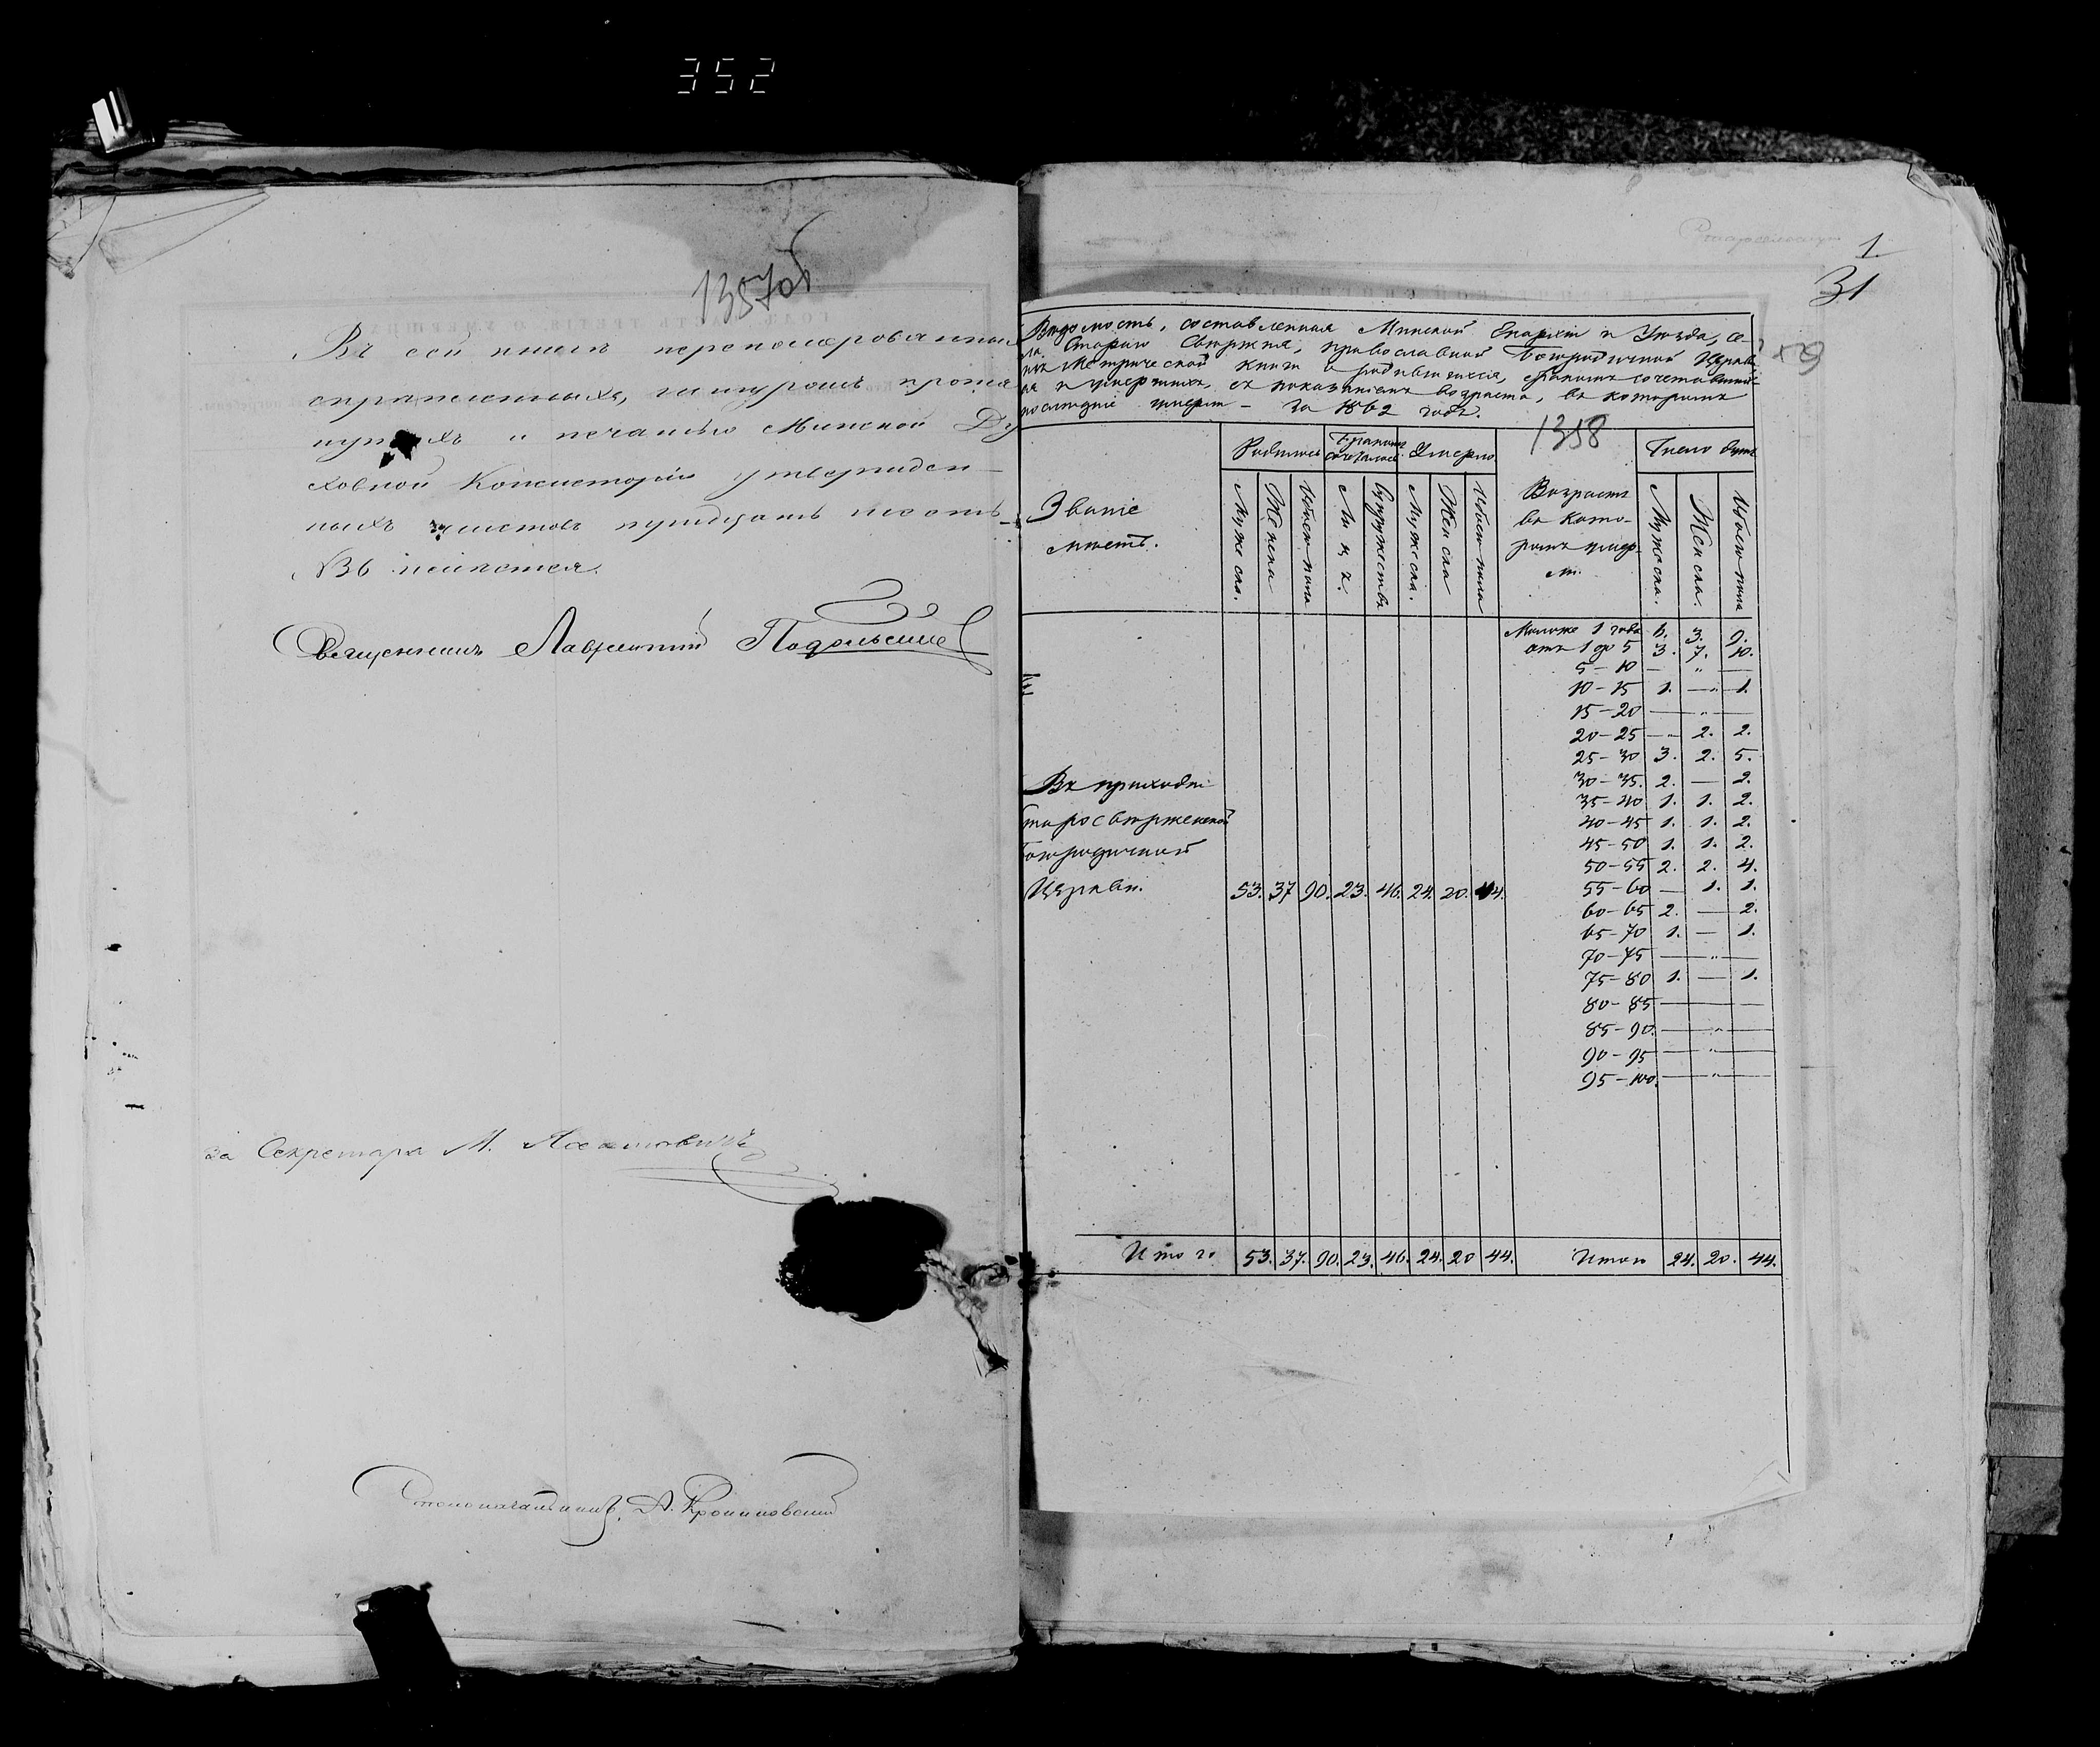 352
1357об
Въ сей книгѣ перенумерованныхъ
скрѣпленныхъ, шнуромъ проше
нурахъ и печатью Минской Ду
ховной Консисторіи утвержден
ныхъ листовъ тридцать шесть
36 пишется.
Священникъ Лаврентій Подольскій
за Секретаря М.
Столоначальникъ, А.
1.
31
Вѣдомость, составленная Минской Епархіи и Уѣзда, се-
ла Стараго Свержня, православной Богородичной Церкви
изъ Метрической книги о родившихся, бракомъ сочетавших-
ся и умершихъ, съ показаніемъ возраста, въ которомъ
послѣдніе умерли – за 1862 годъ.
1358
Званіе мѣстъ.
Родилось
Бракомъ сочеталось
Умерло
Возрастъ въ которомъ умерли
Число душъ
Мужеска. Женска Обоего пола Лицъ. Супружествъ Мужеска. Женска Обоего пола Мужеска. Женска. Обоего пола
Моложе 1 года 6. 3. 9.
отъ 1 до 5 3. 7. 10.
5–10 — „ —
10–15 1. — „ 1.
15–20 — „ —
20–25 — „ 2. 2.
25–30 3. 2. 5.
30–35. 2. — 2.
35–40 1. 1. 2.
40–45 1. 1. 2.
45–50 1. 1. 2.
50–55 2. 2. 4.
55–60 — 1. 1.
60–65 2. — 2.
65–70 1. — 1.
70–75 — „ —
75–80 1. — 1.
80–85 — —
85–90. — „ —
90–95 — „ —
95–100. — „ —
Въ приходѣ
Старосвержен­ской
Богородичной
Церкви. 53. 37 90. 23. 46. 24. 20. 44.
Итого 53. 37. 90. 23. 46. 24. 20 44. Итого 24. 20. 44.